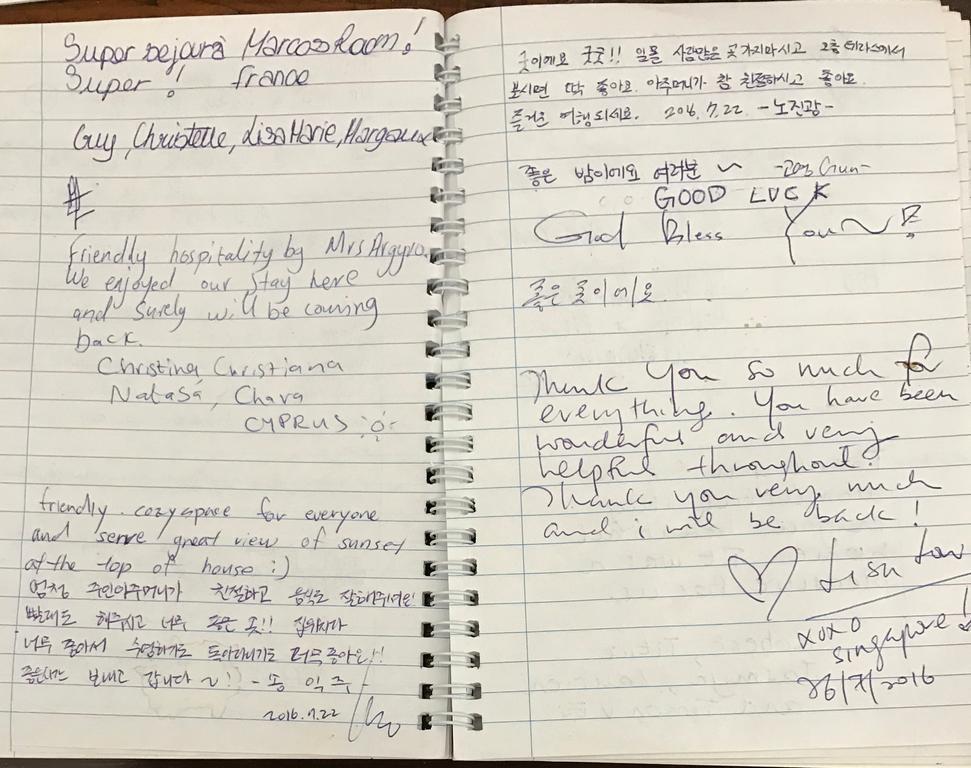 Super sejour à Marcos Room!
Super! france
Guy, Christelle, Lisa Marie, Margaux
Friendly hospitality by Mrs Argyro.
We enjoyed our stay here
and surely will be coming
back.
Christina Christiana
Natasa, Chara
CYPRUS
friendly. cozy space for everyone
and serve great view of sunset
at the top of house :)
엄청 주인아주머니가 친절하고 음식도 잘해주셔요!
빨래도 해주시고 너무 좋은 곳!!
너무 좋아서 수영하기도 돌아다니기도 너무 좋아요!!
보내고 갑니다~!
2016.7.22
굿이에요 굿굿!! 일몰 사람많은 곳 가지마시고 2층 테라스에서
보시면 딱 좋아요. 아주머니가 참 친절하시고 좋아요.
즐거운 여행 되세요. 2016.7.22. -노진광-
좋은 밤이에요 여러분 ~
GOOD LUCK
God Bless You~
좋은 곳이에요.
Thank you so much for
everything. You have been
wonderful and very
helpful throughout!
Thank you very much
and i will be back!
xoxo
Singapore!
26/7/2016